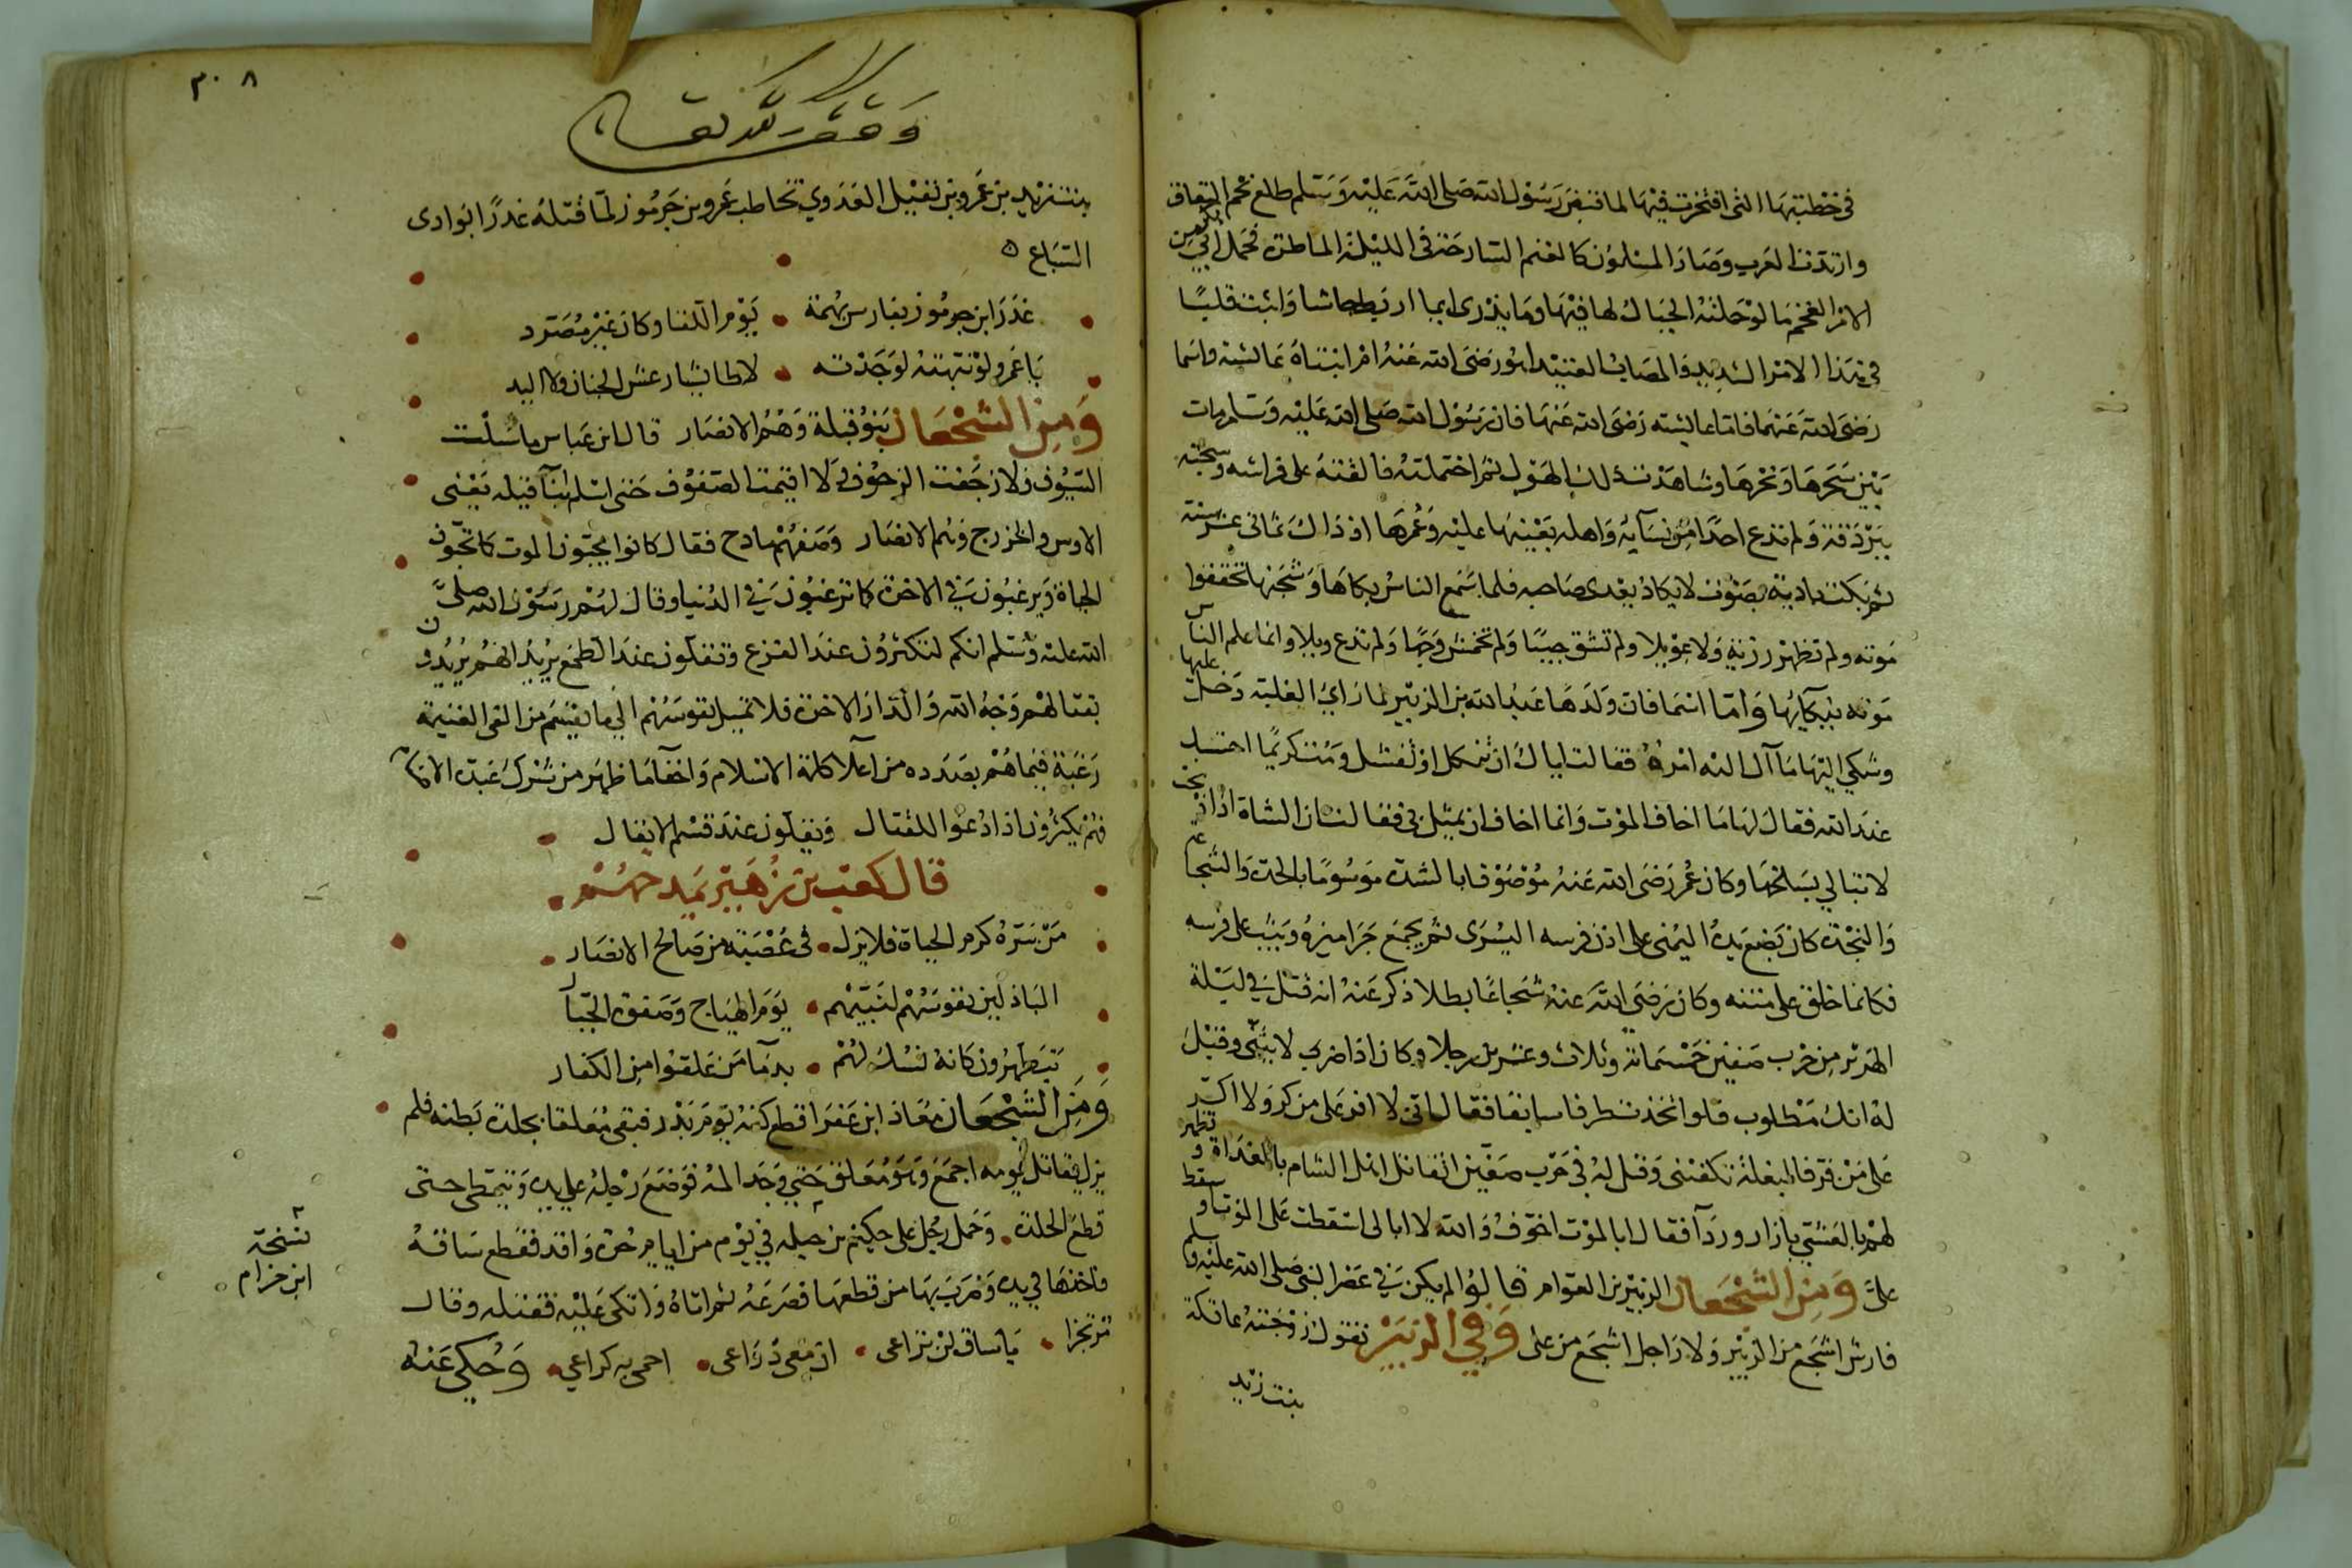 في خطبتها التي افتخرت فيها لما قبض رسول الله صلى الله عليه وسلم طلع نجم النفاق
وارتدت العرب وصار المسلمون كالغنم السارحة في الليلة الماطرة فحمل ابي من
الامر الفخم ما لو حملته الجبال لهاضها وما يدرى ايما اربط جاشا واثبت قلبا
في هذا الامر الشديد والمصاب العتيد ابو رضى الله عنه امر ابنتاه عائشة واسما
رضى الله عنهما فاما عائشة رضى الله عنها فان رسول الله صلى الله عليه وسلم مات
بين سحرها ونحرها وشاهدت ذلك الهول ثم احتملته فالقته على فراشه وسجته
ببردته ولم تدع احدا من نسآيه واهله بعينها عليه وعمرها اذ ذاك ثمانى عشر سنة
ثم بكت نادبة بصوت لا يكاد يعدى صاحبه فلما سمع الناس بكاها وشجنها تحققوا
موته ولم تظهر رزية ولا عويلا ولم تشق جيبا ولم تخمش وجها ولم تدع ويلا وانما علم الناس
موته ببكآيها واما اسما فان ولدها عبد الله بن الزبير لما راى الغلبة دخل عليها
وشكى اليها ما آل اليه امره فقالت اياك ان تنكل او تفشل ومت كريما احتسبك
عند الله فقال لها ما اخاف الموت وانما اخاف ان يمثل بى فقالت ان الشاة اذا ذبحت
لا تبالي بسلخها وكان عمر رضى الله عنه موصوفا بالشدة موسوما بالحدة والشجاعة
والنجدة كان يضع يده اليمنى على اذن فرسه اليسرى ثم يجمع جراميزه ويثب على فرسه
فكانما خلق على متنه وكان رضى الله عنه شجاعا بطلا ذكر عنه انه قتل في ليلة
الهرير من حرب صفين خمسمائة وثلاث وعشرين رجلا وكان اذا ضرب لا يثنى وقيل
له انك مطلوب فلو اتخذت طرفا سابقا فقال اننى لا افر على من كر ولا اكر
على من فر فالبغلة تكفينى وقيل له في حرب صفين اتقاتل اهل الشام بالغداة وتظهر
لهم بالعشي بازار وردآ فقال ابالموت اخوف والله لا ابالى اسقطت على الموت او سقط
على ومن الشجعان الزبير بن العوام قالوا لم يكن في عصر النبي صلى الله عليه وسلم
فارس اشجع من الزبير ولا راجل اشجع من على وفي الزبير تقول زوجته عاتكة
بنت زيد
٣٠٨
بنت زيد بن عمرو بن نفيل العدوي تخاطب عمرو بن جرموز لما قتله غدرا بوادى
السباع
غدر ابن جرموز بفارس بهمة • يوم اللقا وكان غير معرد
يا عمرو لو نبهته لوجدته • لا طايشا رعش الجنان ولا اليد
ومن الشجعان بنو قيلة وهم الانصار قال ابن عباس ما سلت
السيوف ولا زحفت الزحوف ولا اقيمت الصفوف حتى اسلم ابنآ قيله يعنى
الاوس والخزرج وهم الانصار وصفهم مادح فقال كانوا يحبون الموت كما تحبون
الحياة ويرغبون في الاخرة كما ترغبون في الدنيا وقال لهم رسول الله صلى
الله عليه وسلم انكم لتكثرون عند الفزع وتقلون عند الطمع يريد انهم يريدون
بقتالهم وجه الله والدار الاخرة فلا تميل نفوسهم الى ما يقسم من الفي الغنيمة
رغبة فيما هم بصدده من اعلا كلمة الاسلام واخفآ ما ظهر من شرك عبدة الاصنام
فهم يكثرون اذا دعوا للقتال ويقلون عند قسم الانفال
قال كعب بن زهير يمدحهم
من سره كرم الحياة فلا يزل • في عصبة من صالح الانصار
الباذلين نفوسهم لنبيهم • يوم الهياج وصفوة الجبار
يتطهرون كانه نسك لهم • بدمآ من علقوا من الكفار
ومن الشجعان معاذ ابن عفرا قطع كتفه يوم بدر فبقى معلقا بجلدة بطنه فلم
يزل يقاتل يومه اجمع وهو معلق حتي وجد المه فوضع رجله على يده وتمطى حتى
قطع الجلدة • وحمل رجل على حكيم بن جبله في يوم من ايام حرة واقد فقطع ساقه
فاخذها في يده وضرب بها من قطعها فصرعه ثم اتاه واتكى عليه فقتله وقال
مرتجزا • يا ساق لن تراعى • ان معى ذراعى • احمى به كراعي • وحكي عنه
نسخة
ابن حزام